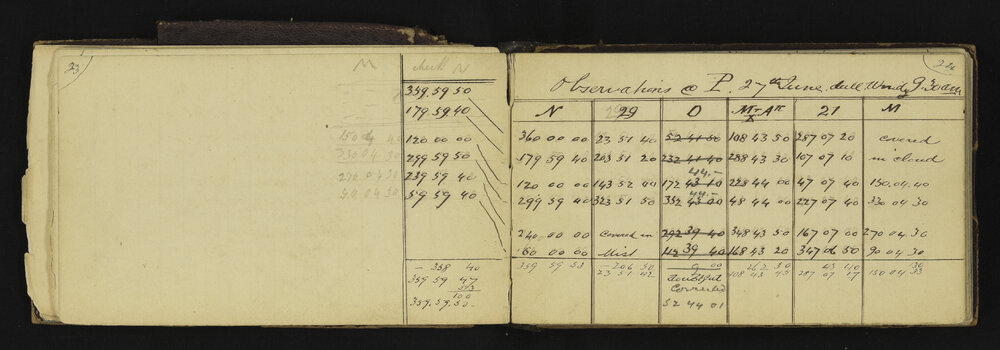 23
M check N
359 59 50
179 59 40
150 4 40 120 00 00
330 04 30 299 59 50
270 04 30 239 59 40
90 04 30 59 59 40
- 358 40
359 59 47
100
359.59.50
24
Observations @ P. 27th June. dull. Windy 9.30am
N 29 O 21 M
360 00 00 23 51 40 52 41 50 108 43 50 287 07 20 covered
179 59 40 203 51 20 232 41 40 288 43 30 107 07 10 in cloud
44.-
120 00 00 143 52 40 172 43 10 228 44 00 47 07 40 150.04.40
44.-
299 59 40 323 51 50 352 43 00 48 44 00 227 07 40 330 04 30
240 00 00 Covered in 292 39 40 348 43 50 167 07 00 270 04 30
60 00 00 Mist 112 39 40 168 43 20 347 06 50 90 04 30
359 59 53 23 51 42 108 43 287 07 150 04 33
doubtful
Corrected
52 44 01